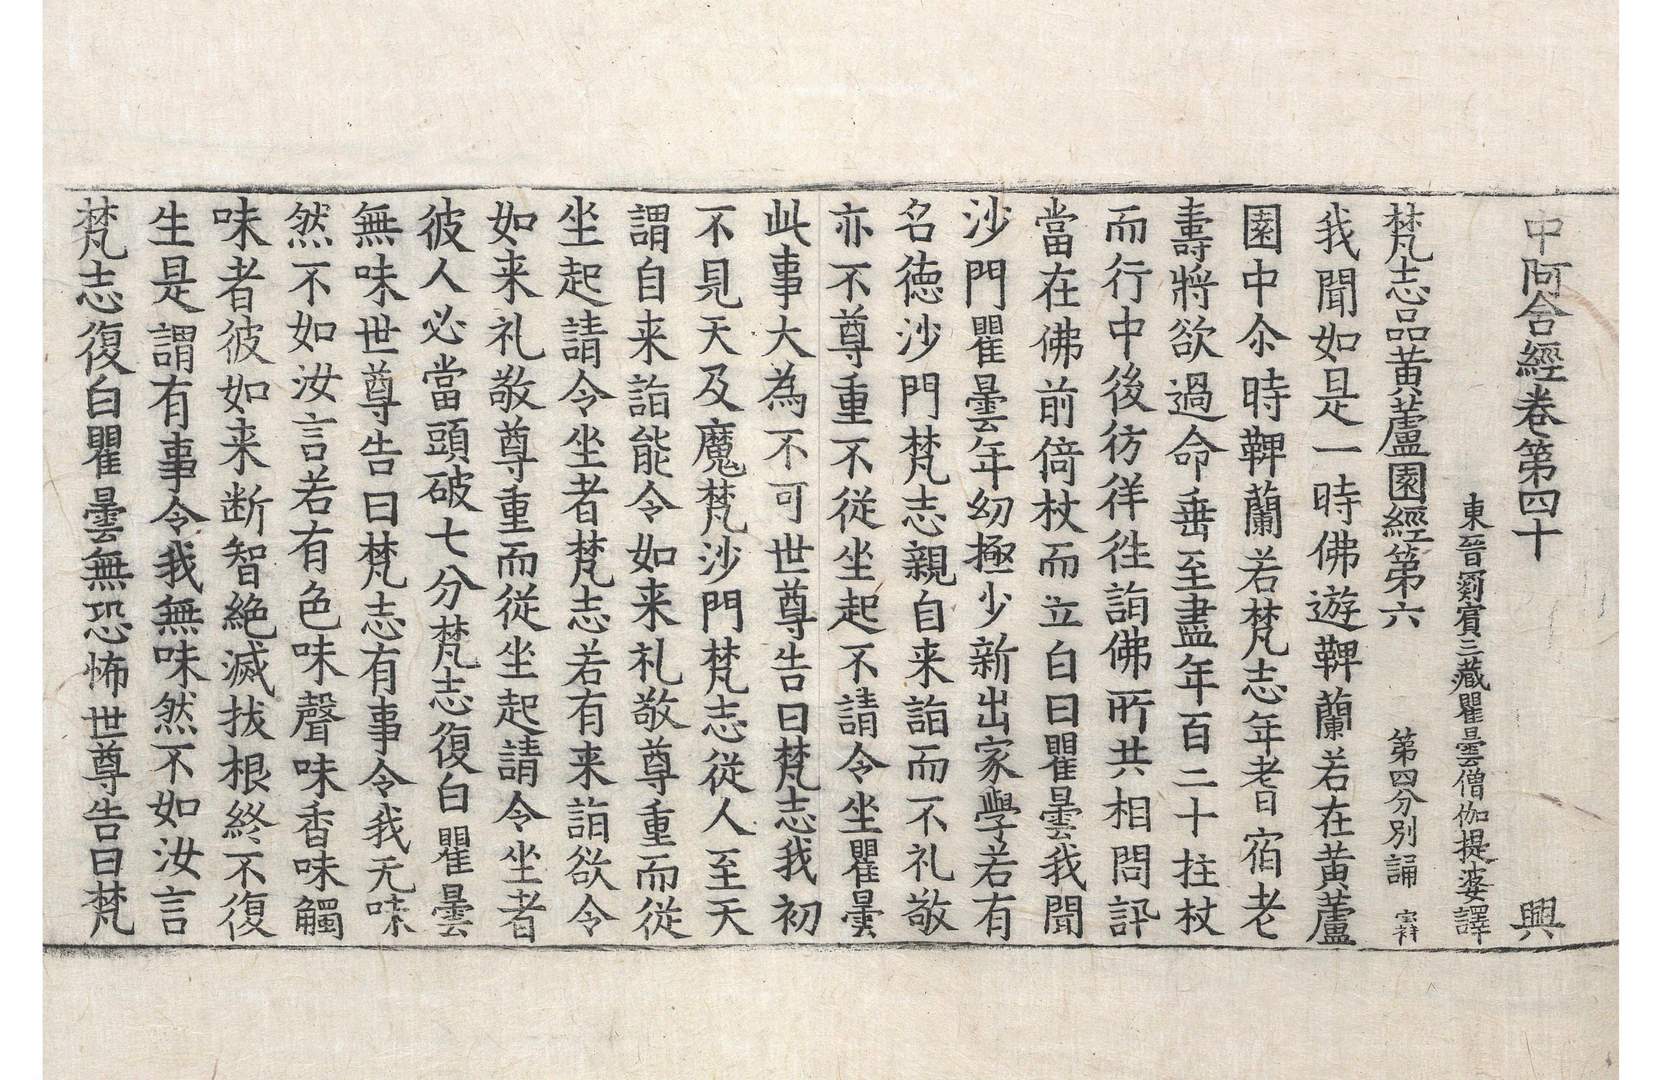 中阿含經卷第四十　興
東晉罽賓三藏瞿曇僧伽提婆譯
梵志品黃蘆園經第六　第四分別誦
我聞如是一時佛遊鞞蘭若在黃蘆
園中尒時鞞蘭若梵志年耆宿老
壽將欲過命垂至盡年百二十拄杖
而行中後彷徉往詣佛所共相問訊
當在佛前倚杖而立白曰瞿曇我聞
沙門瞿曇年幼極少新出家學若有
名德沙門梵志親自来詣而不礼敬
亦不尊重不從坐起不請令坐瞿曇
此事大為不可世尊告曰梵志我初
不見天及魔梵沙門梵志從人至天
謂自来詣能令如来礼敬尊重而從
坐起請令坐者梵志若有来詣欲令
如来礼敬尊重而從坐起請令坐者
彼人必當頭破七分梵志復白瞿曇
無味世尊告曰梵志有事令我无味
然不如汝言若有色味聲味香味觸
味者彼如来断智絶滅拔根終不復
生是謂有事令我無味然不如汝言
梵志復白瞿曇無恐怖世尊告曰梵